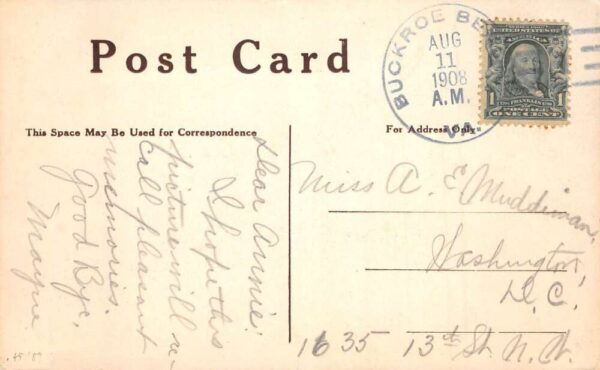 Post Card
BUCKROE BE
AUG
11
1908
A.M.
VA.
UNITED STATES OF
AMERICA
FRANKLIN
1 POSTAGE 1
ONE CENT
This Space May Be Used for Correspondence
For Address Only.
Dear Annie:
I hope this
picture will re-
call pleasant
memories.
Good Bye,
Mayme
Miss A. E. Muddiman,
Washington,
D.C.
1635 13th St. N.W.